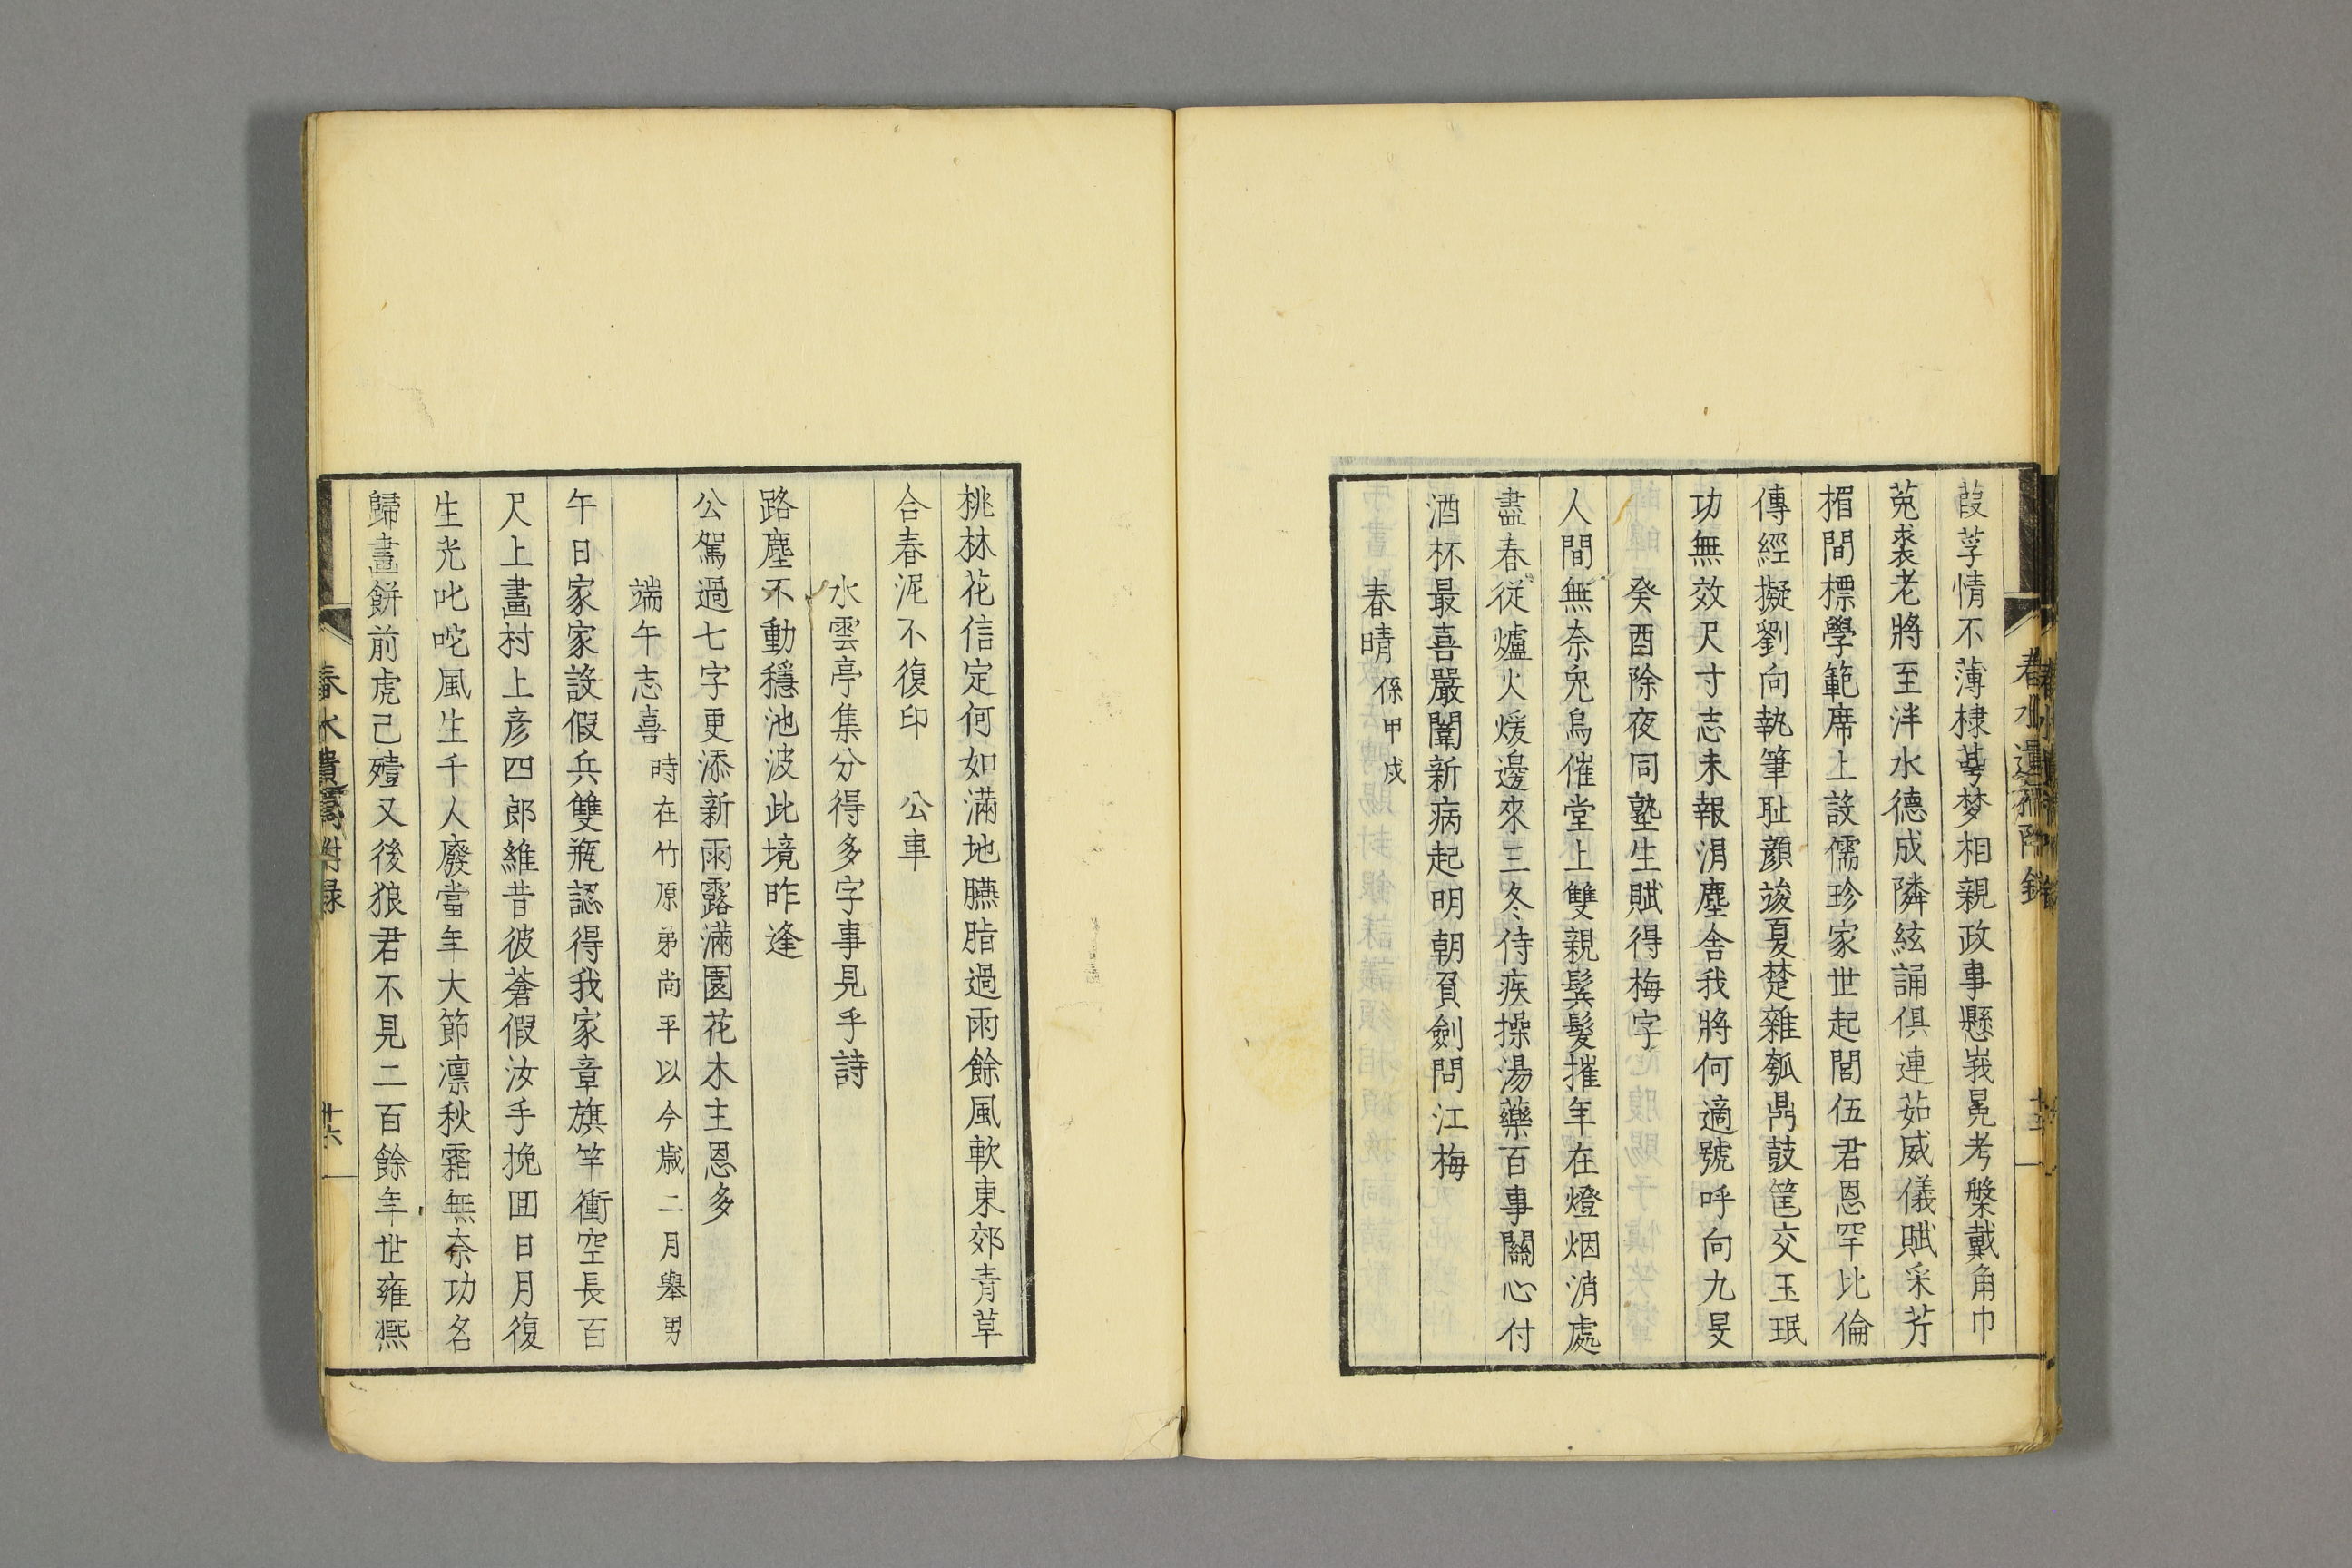 葭莩情不薄棣萼梦相親政事懸峩冕考槃戴角巾
菟裘老將至泮水德成隣絃誦俱連茹威儀賦采芹
楣間標學範席上設儒珍家世起閭伍君恩罕比倫
傳經擬劉向執筆耻顔竣夏楚雜瓠鼎鼓筐交玉珉
功無效尺寸志未報涓塵舎我將何適號呼向九旻
癸酉除夜同塾生賦得梅字
人間無奈兎烏催堂上雙親鬂髪摧年在燈烟消處
盡春從爐火煖邊來三冬侍疾操湯藥百事關心付
酒杯最喜嚴闈新病起明朝負劍問江梅
春晴 係甲戌
桃林花信定何如滿地臙脂過雨餘風軟東郊青草
合春泥不復印 公車
水雲亭集分得多字事見乎詩
路塵不動穩池波此境昨逢
公駕過七字更添新雨露滿園花木主恩多
端午志喜 時在竹原弟尚平以今歳二月舉男
午日家家設假兵雙瓶認得我家章旗竿衝空長百
尺上畫村上彦四郎維昔彼蒼假汝手挽囬日月復
生光叱咤風生千人廢當年大節凛秋霜無奈功名
歸畫餅前虎已殪又後狼君不見二百餘年世雍熙
春水遺稿附録
十六